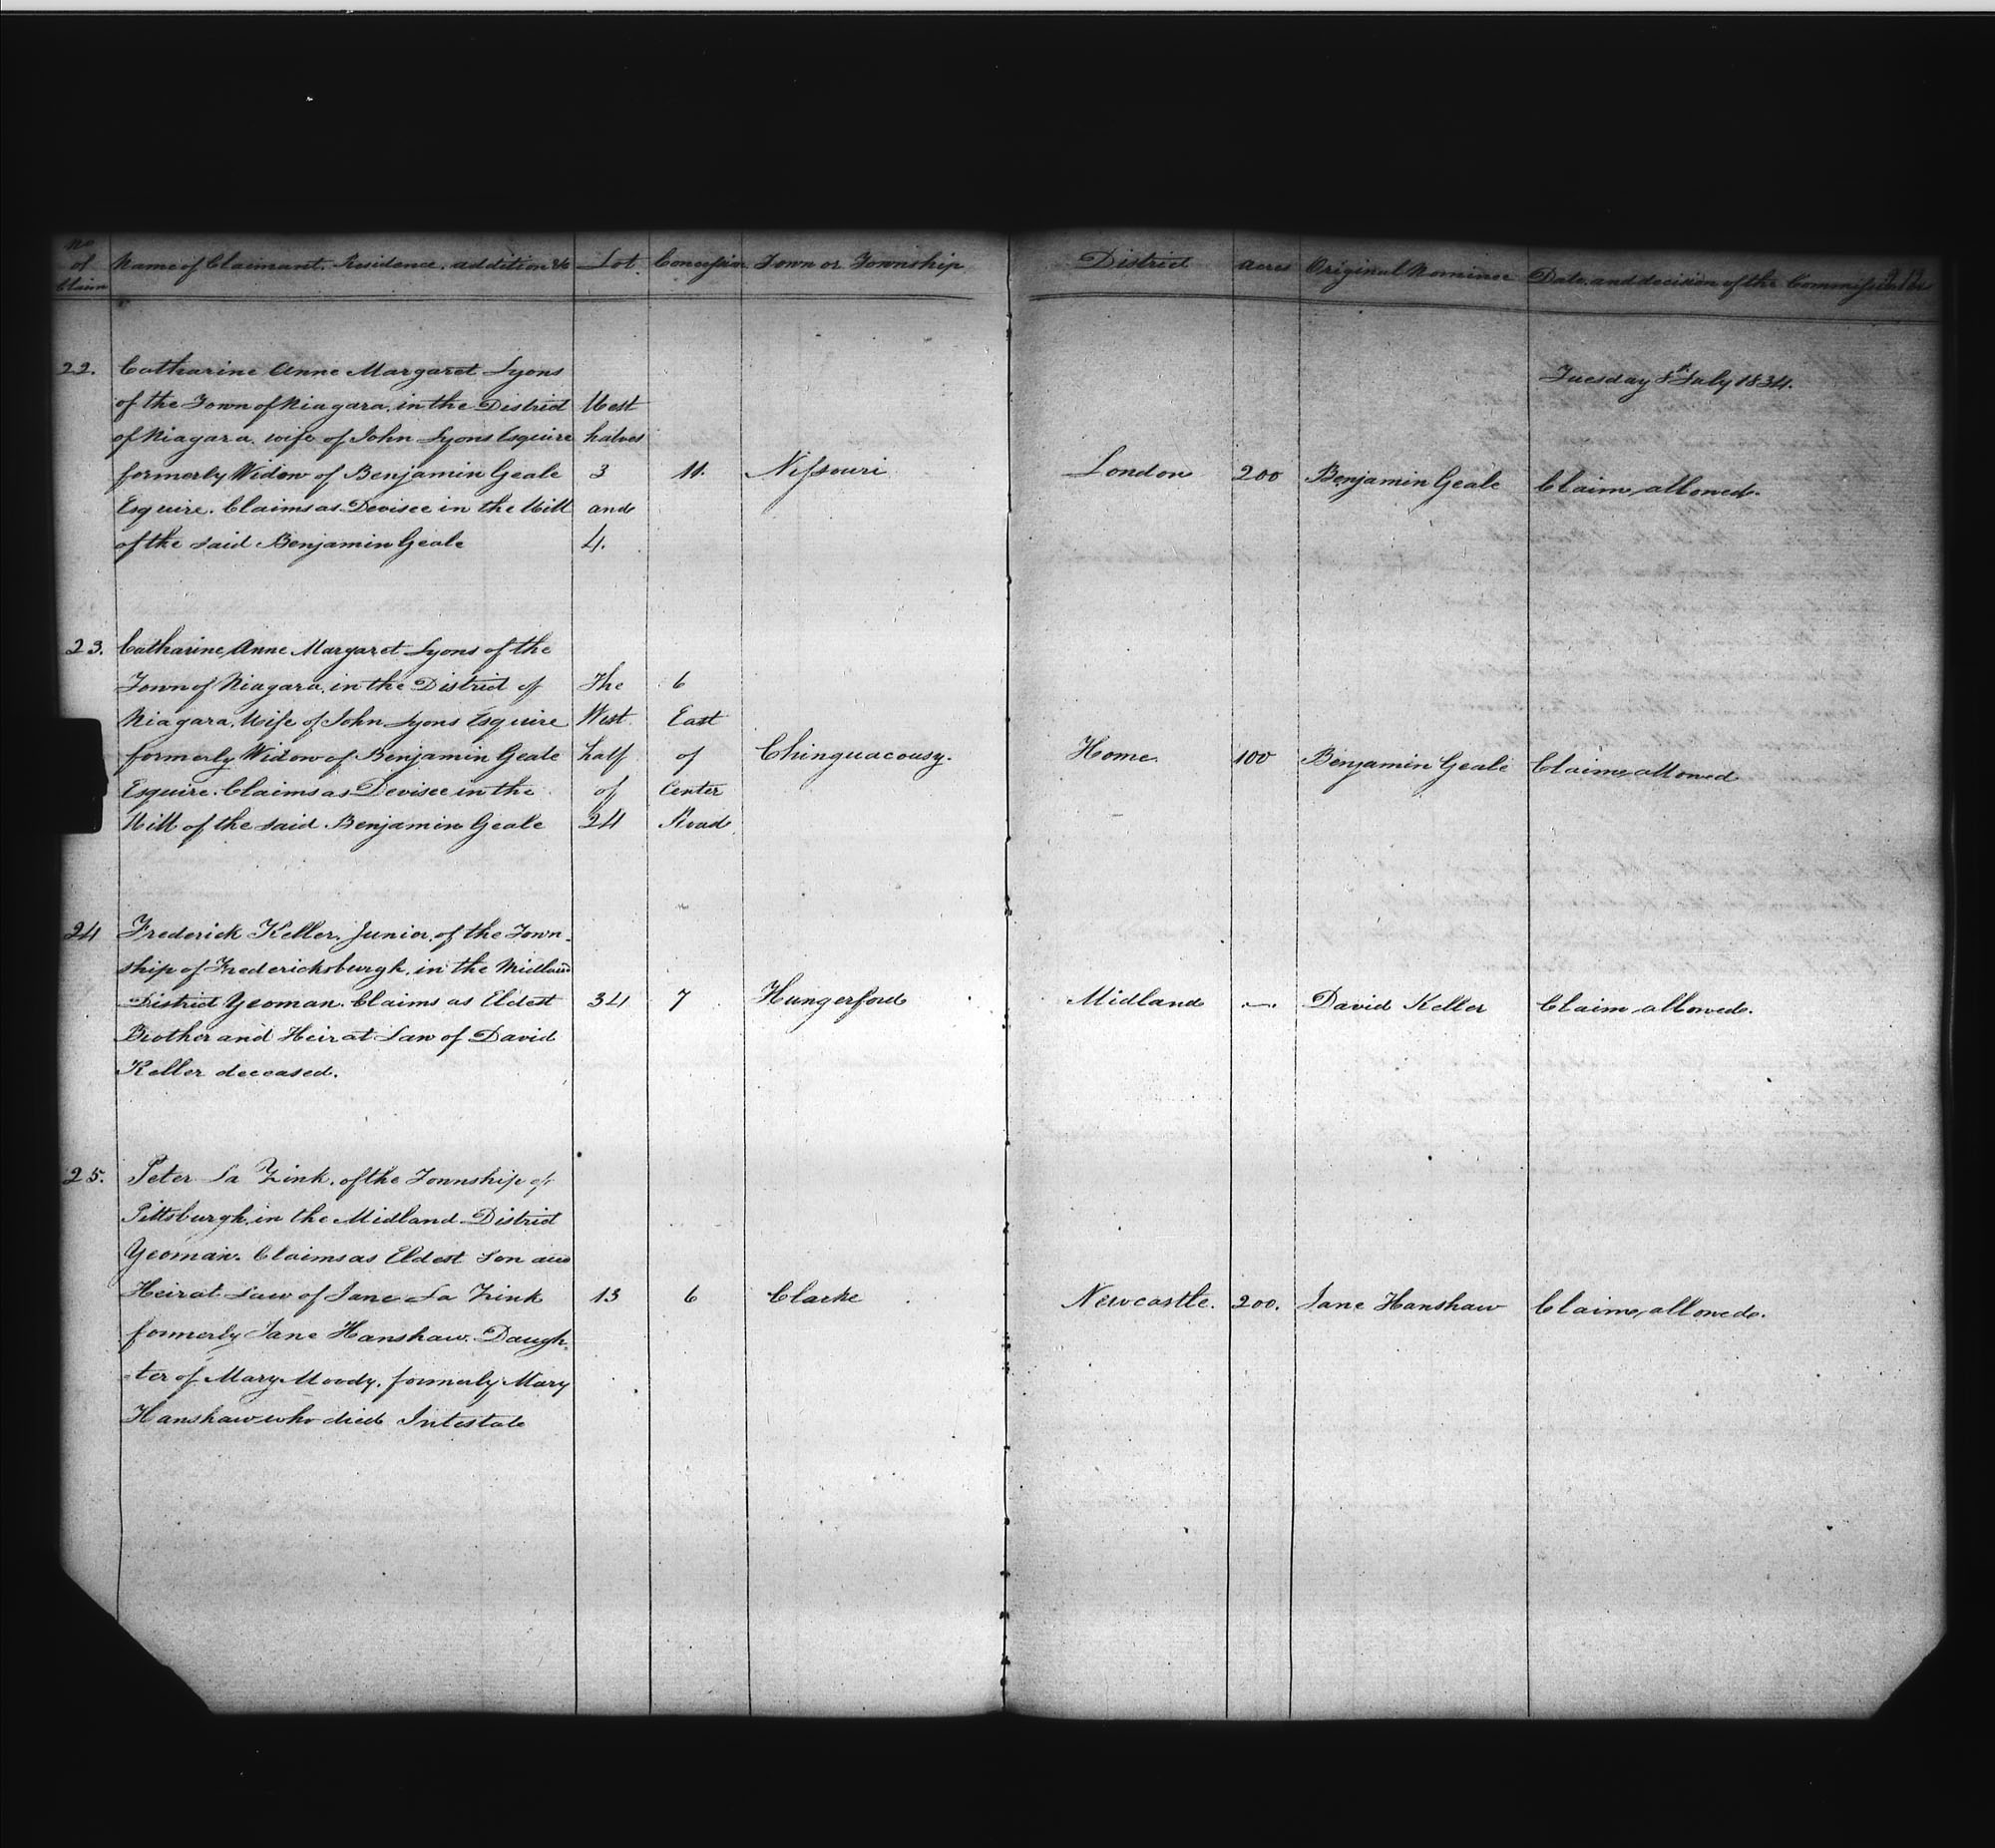 No of Claim | Name of Claimant. Residence. addition &c | Lot. | Concession | Town or Township | District | acres | Original Nominee | Date and decision of the Commissioners
Tuesday 8th July 1834.
22. Catharine Anne Margaret Lyons
of the Town of Niagara, in the District | West
of Niagara, wife of John Lyons Esquire | halves
formerly Widow of Benjamin Geale | 3 | 11. | Nissouri | London | 200 | Benjamin Geale | Claim allowed.
Esquire. Claims as Devisee in the Will | and
of the said Benjamin Geale | 4.
23. Catharine Anne Margaret Lyons of the
Town of Niagara, in the District of | The | 6
Niagara, Wife of John Lyons Esquire | West | East
formerly Widow of Benjamin Geale | half | of | Chinguacousy. | Home. | 100 | Benjamin Geale | Claim allowed
Esquire. Claims as Devisee in the | of | Center
Will of the said Benjamin Geale | 24 | Road
24 Frederick Keller, Junior, of the Town-
ship of Fredericksburgh, in the Midland
District Yeoman. Claims as Eldest | 34 | 7 | Hungerford | Midland | — | David Keller | Claim allowed.
Brother and Heir at Law of David
Keller deceased.
25. Peter La Zink, of the Township of
Pittsburgh, in the Midland District
Yeoman. Claims as Eldest Son and
Heir at Law of Jane La Zink | 13 | 6 | Clarke | Newcastle. | 200. | Jane Hanshaw | Claim allowed.
formerly Jane Hanshaw. Daugh-
-ter of Mary Moody, formerly Mary
Hanshaw who died Intestate